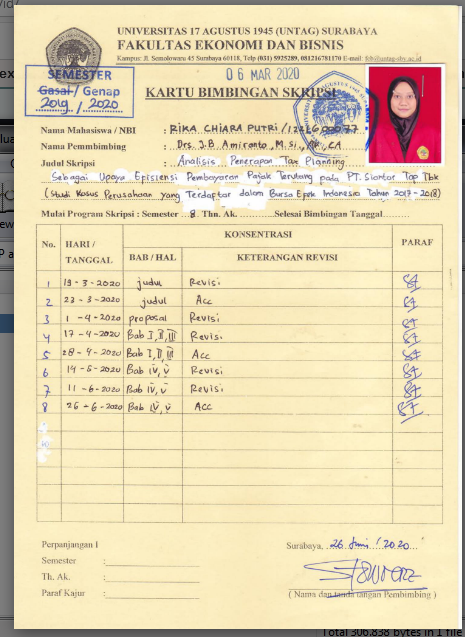 UNIVERSITAS 17 AGUSTUS 1945 (UNTAG) SURABAYA
FAKULTAS EKONOMI DAN BISNIS
Kampus: Jl. Semolowaru 45 Surabaya 60118, Telp (031) 5925289, 081216781170 E-mail: feb@untag-sby.ac.id
SEMESTER
Gasal / Genap
2019 / 2020
06 MAR 2020
KARTU BIMBINGAN SKRIPSI
Nama Mahasiswa / NBI : RIKA CHIARA PUTRI /
Nama Pemmbimbing : Drs. I.B. Amiranto, M.Si., Ak., CA
Judul Skripsi : Analisis Penerapan Tax Planning
Sebagai Upaya Efisiensi Pembayaran Pajak Terutang pada PT. Siantar Top Tbk
(Studi Kasus Perusahaan yang Terdaptar dalam Bursa Efek Indonesia Tahun 2017-2018)
Mulai Program Skripsi : Semester 8 Thn. Ak. Selesai Bimbingan Tanggal
No. HARI / TANGGAL KONSENTRASI PARAF
BAB / HAL KETERANGAN REVISI
1 19-3-2020 judul Revisi
2 23-3-2020 judul Acc
3 1-4-2020 proposal Revisi
4 17-4-2020 Bab I, II, III Revisi
5 28-4-2020 Bab I, II, III Acc
6 14-5-2020 Bab IV, V Revisi
7 11-6-2020 Bab IV, V Revisi
8 26-6-2020 Bab IV, V Acc
Perpanjangan I
Semester :
Th. Ak. :
Paraf Kajur :
Surabaya, 26 Juni 2020
( Nama dan tanda tangan Pembimbing )
Total 306.838 bytes in 1 file